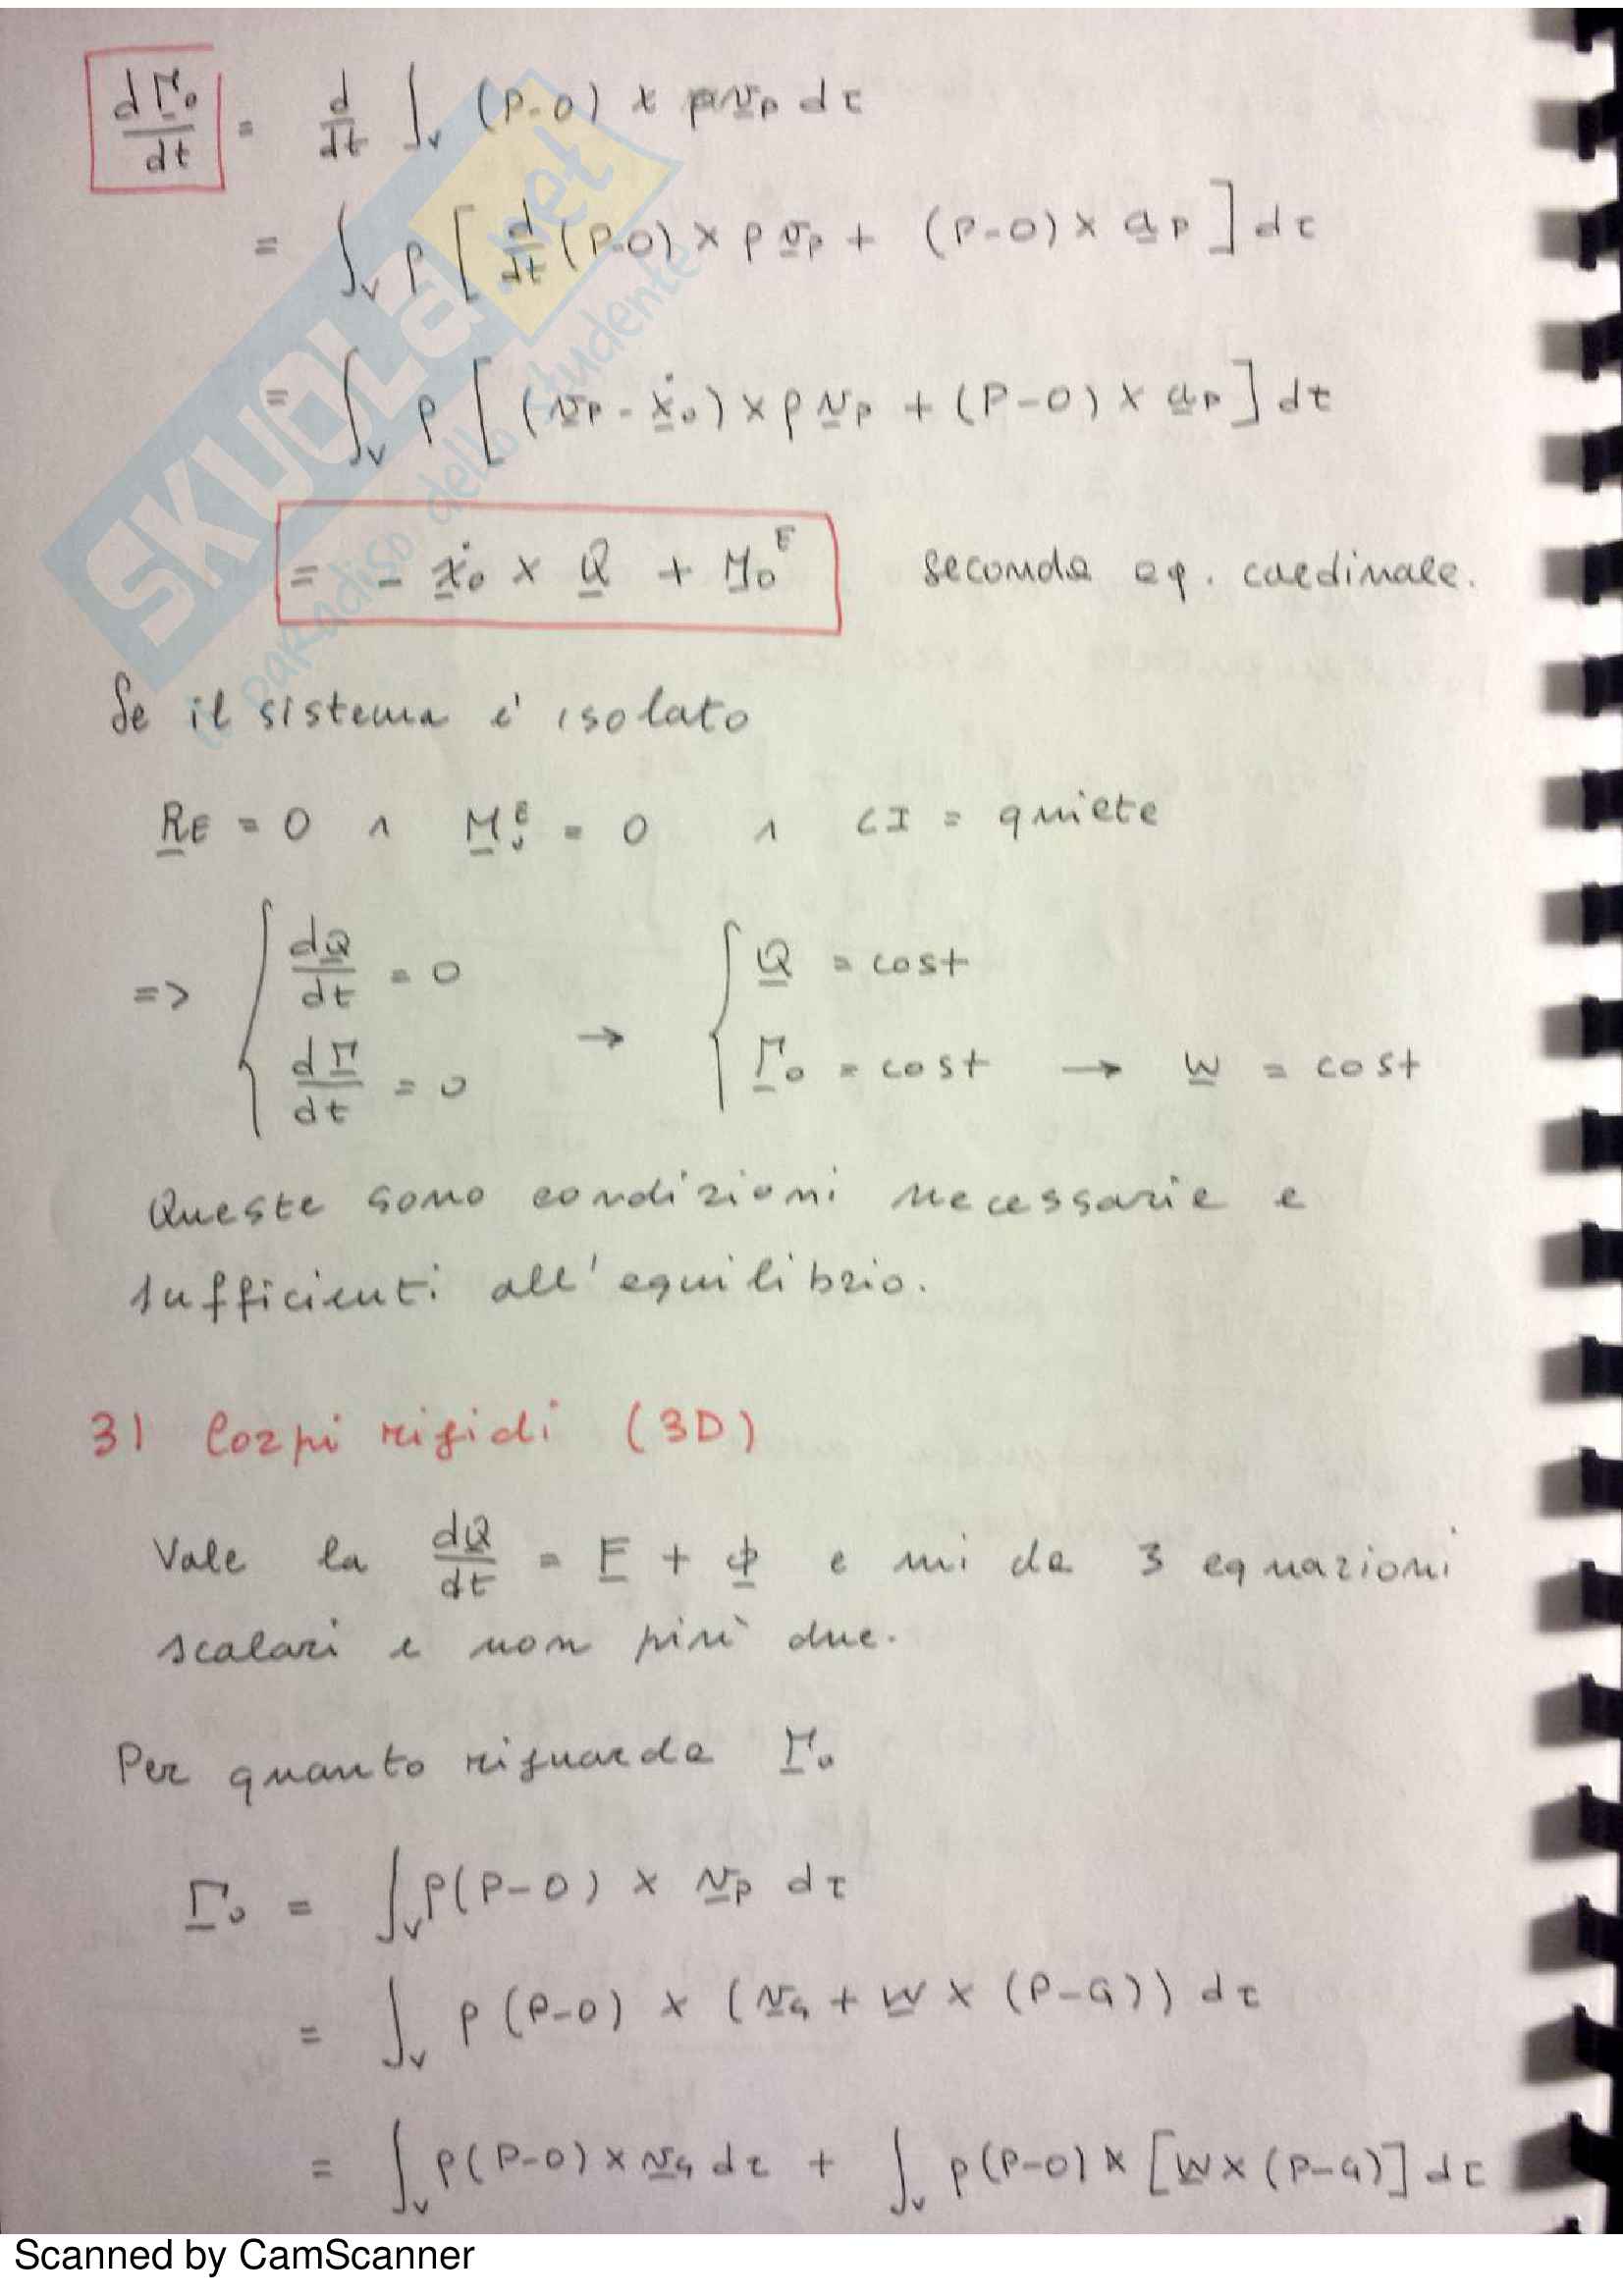 dΓ₀/dt = d/dt ∫ᵥ (P-O) × ρv_P dτ
= ∫ᵥ ρ [ d/dt (P-O) × ρ v_P + (P-O) × a_P ] dτ
= ∫ᵥ ρ [ (v_P - ẋ₀) × ρ v_P + (P-O) × a_P ] dτ
= - ẋ₀ × Q + M₀ᴱ seconda eq. cardinale.
Se il sistema e' isolato
R_E = 0 ∧ M₀ᴱ = 0 ∧ CI = quiete
=> { dQ/dt = 0 → { Q = cost
dΓ/dt = 0 Γ₀ = cost → w = cost
Queste sono condizioni necessarie e
sufficienti all'equilibrio.
3) Corpi rigidi (3D)
Vale la dQ/dt = F + Φ e mi da 3 equazioni
scalari e non più due.
Per quanto riguarda Γ₀
Γ₀ = ∫ᵥ ρ(P-O) × v_P dτ
= ∫ᵥ ρ (P-O) × (v_G + w × (P-G)) dτ
= ∫ᵥ ρ(P-O) × v_G dτ + ∫ᵥ ρ(P-O) × [w × (P-G)] dτ
SKUOLA.net
il paradiso dello studente
Scanned by CamScanner